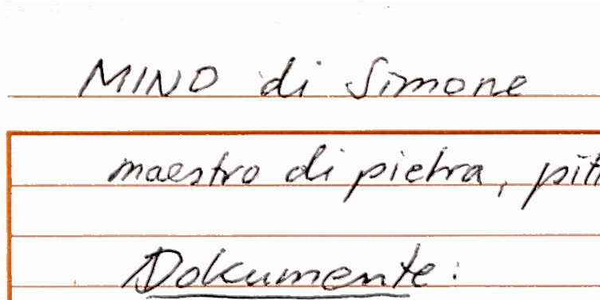 MINO di Simone
maestro di pietra,
Dokumente: